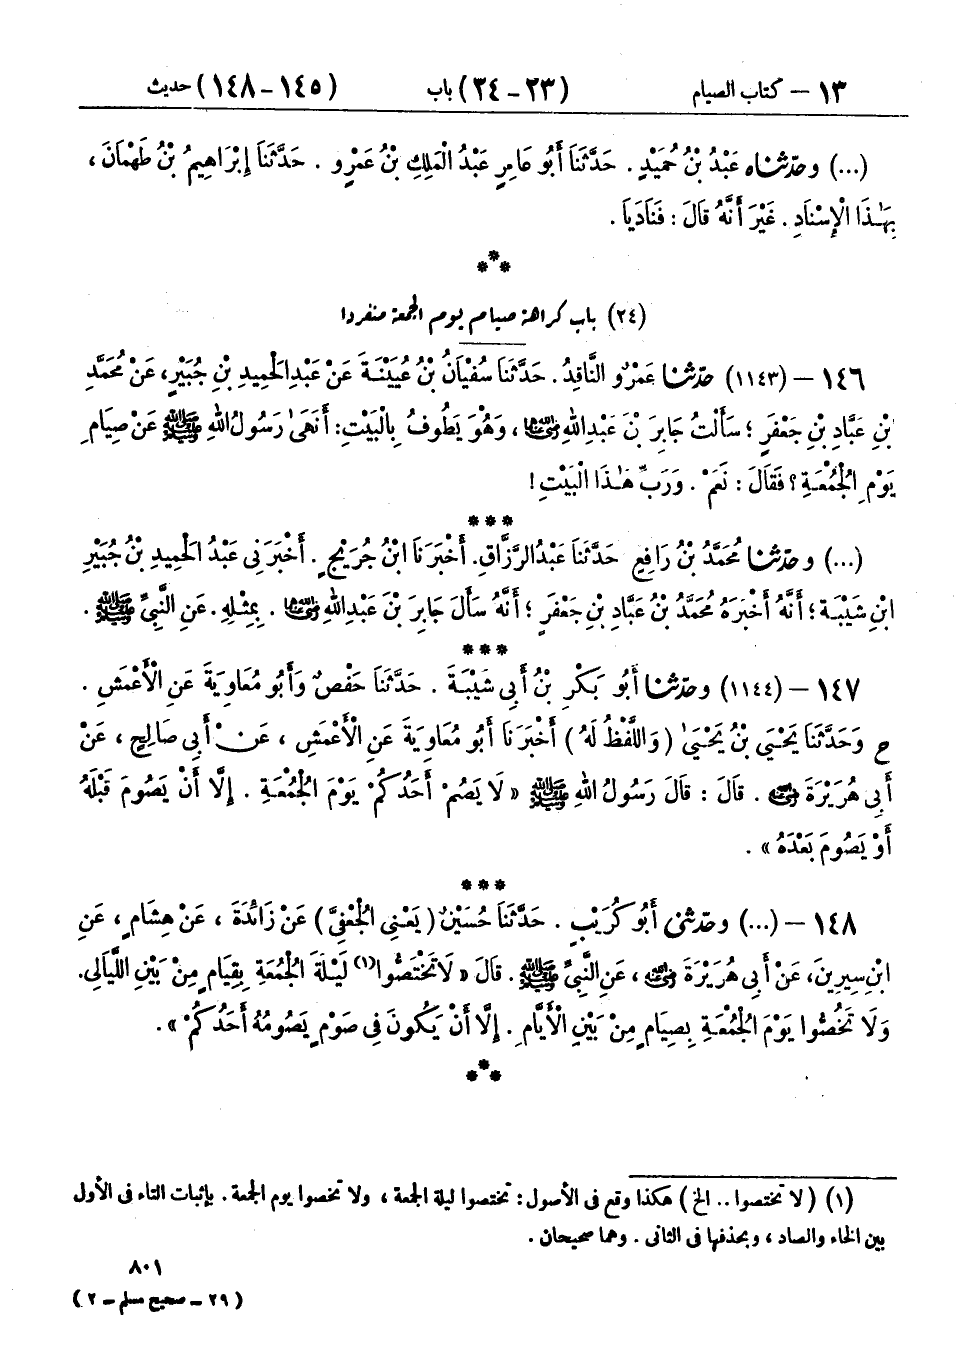 ١٣ – كتاب الصيام (٢٣ – ٢٤) باب (١٤٥ – ١٤٨) حديث
(...) وحدّثناه عَبْدُ بْنُ حُمَيْدٍ . حَدَّثَنَا أَبُو عَامِرٍ عَبْدُ الْمَلِكِ بْنُ عَمْرٍو . حَدَّثَنَا إِبْرَاهِيمُ بْنُ طَهْمَانَ ،
بِهَـٰذَا الْإِسْنَادِ . غَيْرَ أَنَّهُ قَالَ : فَنَادَيَا .
***
(٢٤) باب كراهة صيام يوم الجمعة منفردا
١٤٦ – (١١٤٣) حدّثنا عَمْرٌو النَّاقِدُ . حَدَّثَنَا سُفْيَانُ بْنُ عُيَيْنَةَ عَنْ عَبْدِ الْحَمِيدِ بْنِ جُبَيْرٍ، عَنْ مُحَمَّدِ
بْنِ عَبَّادِ بْنِ جَعْفَرٍ ؛ سَأَلْتُ جَابِرَ بْنَ عَبْدِ اللهِ رضي الله عنهما ، وَهُوَ يَطُوفُ بِالْبَيْتِ : أَنَهَىٰ رَسُولُ اللهِ ﷺ عَنْ صِيَامِ
يَوْمِ الْجُمُعَةِ ؟ فَقَالَ : نَعَمْ . وَرَبِّ هَـٰذَا الْبَيْتِ !
***
(...) وحدّثنا مُحَمَّدُ بْنُ رَافِعٍ حَدَّثَنَا عَبْدُ الرَّزَّاقِ. أَخْبَرَنَا ابْنُ جُرَيْجٍ . أَخْبَرَنِي عَبْدُ الْحَمِيدِ بْنُ جُبَيْرِ
ابْنِ شَيْبَةَ ؛ أَنَّهُ أَخْبَرَهُ مُحَمَّدُ بْنُ عَبَّادِ بْنِ جَعْفَرٍ ؛ أَنَّهُ سَأَلَ جَابِرَ بْنَ عَبْدِ اللهِ رضي الله عنهما . بِمِثْلِهِ . عَنِ النَّبِيِّ ﷺ .
***
١٤٧ – (١١٤٤) وحدّثنا أَبُو بَكْرِ بْنُ أَبِي شَيْبَةَ . حَدَّثَنَا حَفْصٌ وَأَبُو مُعَاوِيَةَ عَنِ الْأَعْمَشِ .
ح وَحَدَّثَنَا يَحْيَى بْنُ يَحْيَىٰ ( وَاللَّفْظُ لَهُ ) أَخْبَرَنَا أَبُو مُعَاوِيَةَ عَنِ الْأَعْمَشِ ، عَنْ أَبِي صَالِحٍ ، عَنْ
أَبِي هُرَيْرَةَ رضي الله عنه . قَالَ : قَالَ رَسُولُ اللهِ ﷺ « لَا يَصُمْ أَحَدُكُمْ يَوْمَ الْجُمُعَةِ . إِلَّا أَنْ يَصُومَ قَبْلَهُ
أَوْ يَصُومَ بَعْدَهُ » .
***
١٤٨ – (...) وحدّثني أَبُو كُرَيْبٍ . حَدَّثَنَا حُسَيْنٌ ( يَعْنِي الْجُعْفِيَّ ) عَنْ زَائِدَةَ ، عَنْ هِشَامٍ ، عَنِ
ابْنِ سِيرِينَ، عَنْ أَبِي هُرَيْرَةَ رضي الله عنه ، عَنِ النَّبِيِّ ﷺ . قَالَ « لَا تَخْتَصُّوا(١) لَيْلَةَ الْجُمُعَةِ بِقِيَامٍ مِنْ بَيْنِ اللَّيَالِي.
وَلَا تَخُصُّوا يَوْمَ الْجُمُعَةِ بِصِيَامٍ مِنْ بَيْنِ الْأَيَّامِ . إِلَّا أَنْ يَكُونَ فِي صَوْمٍ يَصُومُهُ أَحَدُكُمْ » .
***
(١) ( لا تختصوا .. الخ ) هكذا وقع في الأصول : تختصوا ليلة الجمعة ، ولا تخصوا يوم الجمعة . بإثبات التاء في الأول
بين الخاء والصاد ، وبحذفها في الثاني . وهما صحيحان .
٨٠١
( ٢٩ – صحيح مسلم – ٢ )